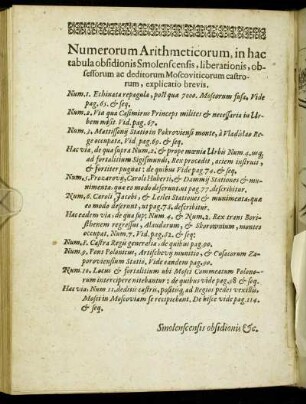 Numerorum Arithmeticorum, in hac
tabula obsidionis Smolenscensis, liberationis, ob-
sessorum ac deditorum Moscoviticorum castro-
rum, explicatio brevis.
Num. 1. Echinata repagula, post quæ 7000. Moscorum fusa, Vide
pag. 65. & seq.
Num. 2. Via qua Casimirus Princeps milites & necessaria in
Urbem misit. Vid. pag. 67.
Num. 3. Mattissonij Statio in Pokroviensi monte, à Vladislao Re-
ge occupata, Vid. pag. 69. & seq.
Hac via, de qua supra Num. 2. & prope mœnia Urbis Num. 4. usq;
ad fortalitium Sigismundi, Rex procedit, aciem instruit,
& fortiter pugnat: de quibus Vide pag. 74. & seq.
Num. 5. Prozarovij, Caroli Huberti, & Stationes &
munimenta: quæ eo modo deserunt. ut pag. 77. describitur.
Num. 6. Caroli Jacobi, & Leslei Stationes & munimēta: quæ
eo modo deserunt. ut pag. 76. describitur.
Hac eadem via: de qua sup: Num. 4. & Num. 2. Rex trans Bori-
sthenem regressus, & montes
occupat, Num. 7. Vid. pag. 82. & seq:
Num. 8. Castra Regis generalia: de quibus pag. 90.
Num. 9. Vens Polonicus, & Cosacorum Za-
poroviensium Statio, Vide eandem pag. 90.
Num. 10. Locus & fortalitium ubi Mosci Commeatum Polono-
rum intercipere nitebantur: de quibus vide pag. 98 & seq.
Hac via. Num. 11. deditis castris, positisq; ad Regios pedes vexillis,
Mosci in Moscoviam se recipiebant. De hisce vide pag. 114.
& seq.
Smolenscensis obsidionis &c.